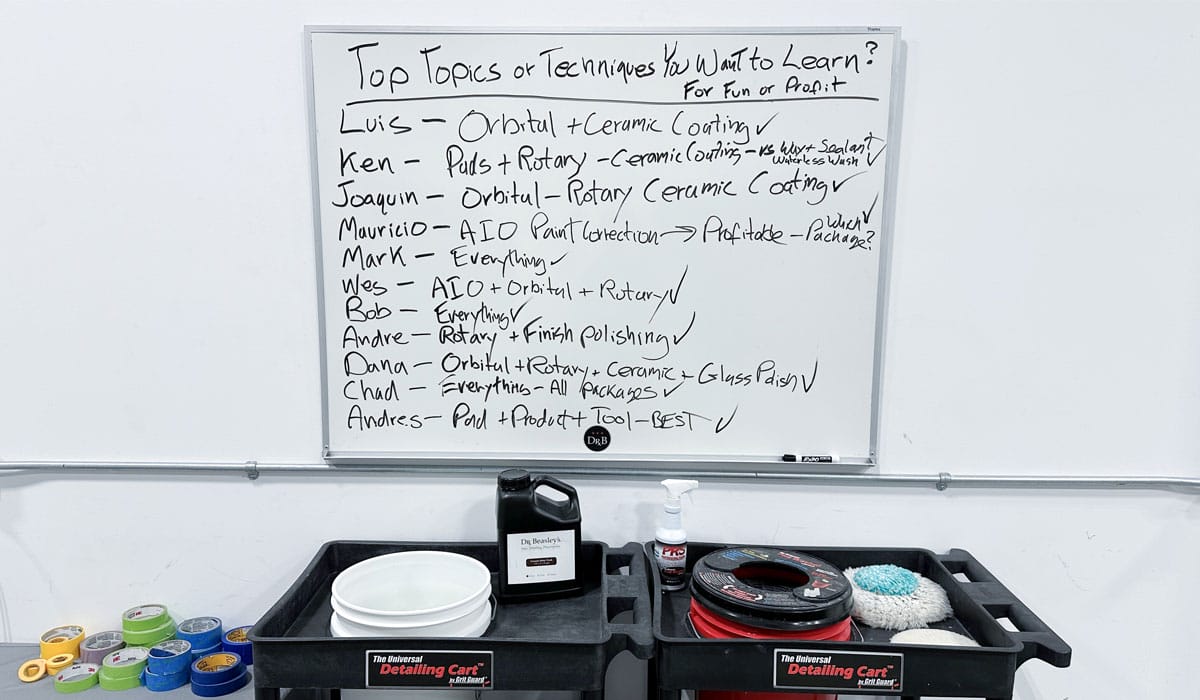 Top Topics or Techniques You Want to Learn?
For Fun or Profit
Luis - Orbital + Ceramic Coating ✓
Ken - Pads + Rotary - Ceramic Coating - vs Wax + Sealant?
Waterless Wash ✓
Joaquin - Orbital - Rotary Ceramic Coating ✓
Mauricio - AIO Paint Correction → Profitable - Which Package? ✓
Mark - Everything ✓
Wes - AIO + Orbital + Rotary ✓
Bob - Everything ✓
Andre - Rotary + Finish polishing ✓
Dana - Orbital + Rotary + Ceramic + Glass Polish ✓
Chad - Everything - All Packages ✓
Andres - Pad + Product + Tool - BEST ✓
DRB
EXPO
Dr. Beasley's
PRS
The Universal
Detailing Cart™
by Grit Guard
The Universal
Detailing Cart™
by Grit Guard